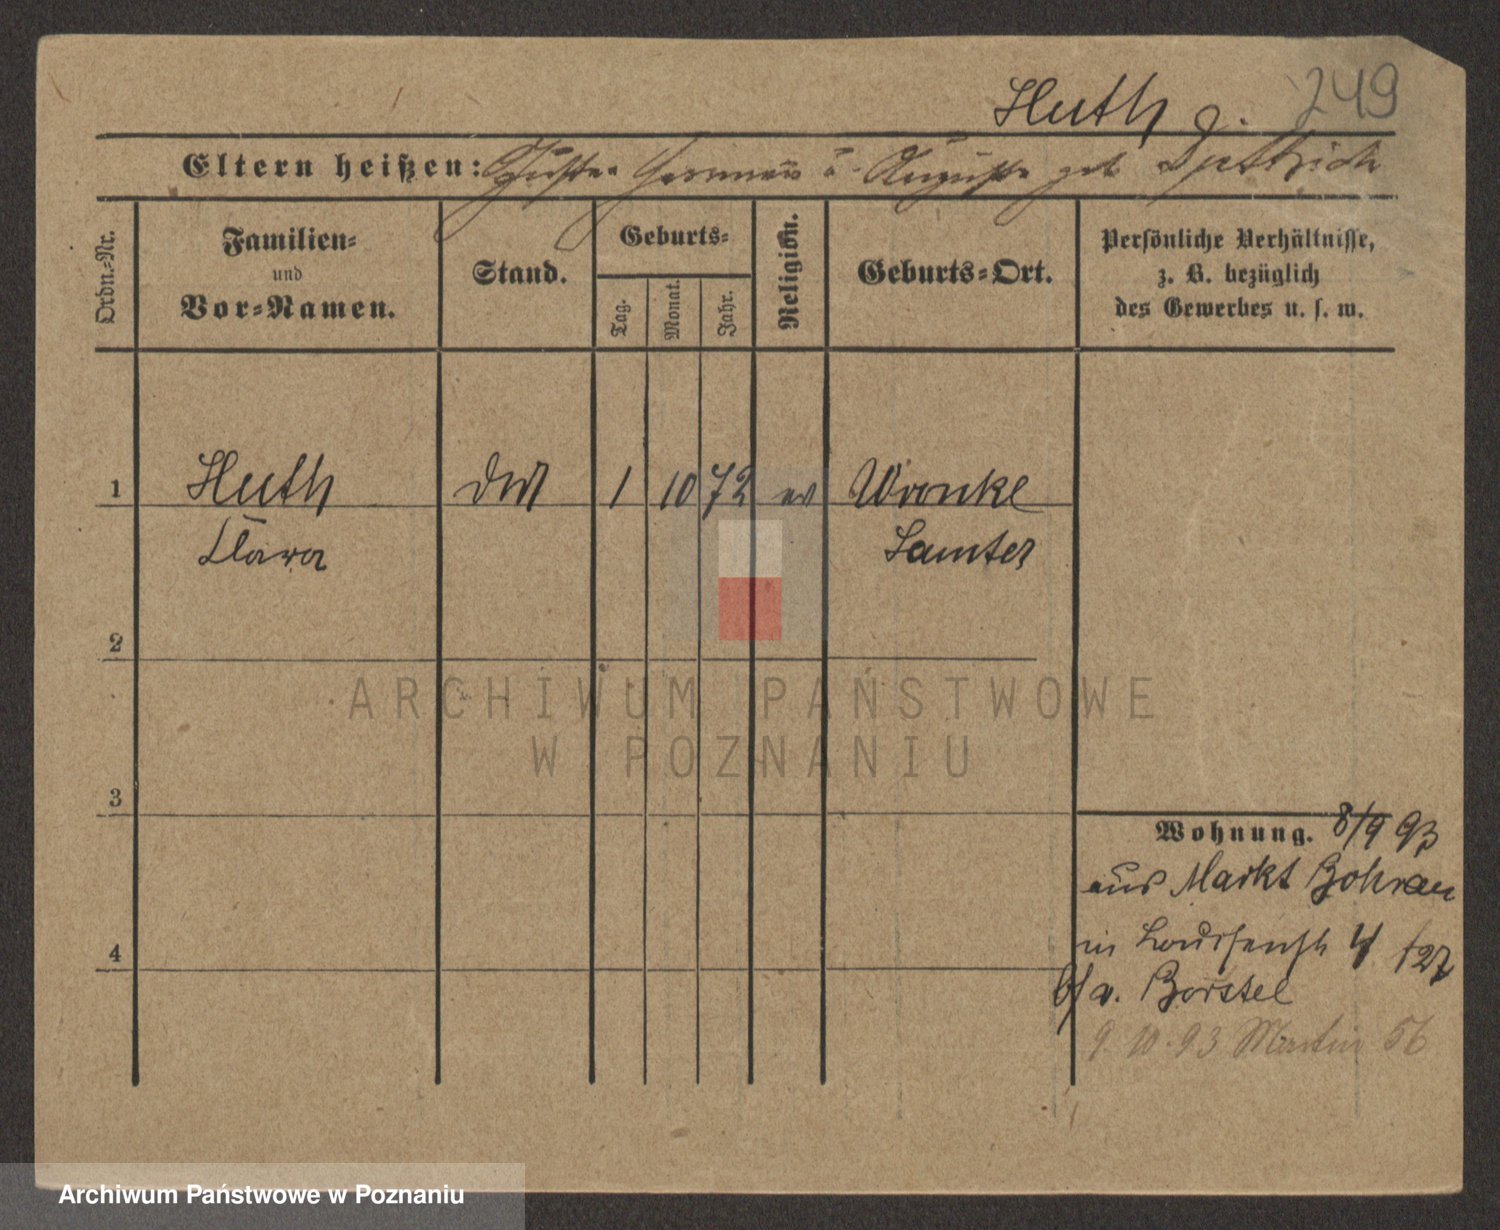 Huth g. 249
Eltern heißen: Hermann u. Auguste geb Dietrich
Ordn.-Nr.
Familien-
und
Vor-Namen.
Stand.
Geburts-
Tag.
Monat.
Jahr.
Religion.
Geburts-Ort.
Persönliche Verhältnisse,
z. B. bezüglich
des Gewerbes u. s. w.
1 Huth 1 10 72 ev Wronke
Clara Samter
2
ARCHIWUM PAŃSTWOWE
W POZNANIU
3
Wohnung. 8/9 93
aus Markt Bohrau
in Louisenstr 4 /27
b/ v. Borstel
4
9. 10. 93 Martin 56
Archiwum Państwowe w Poznaniu